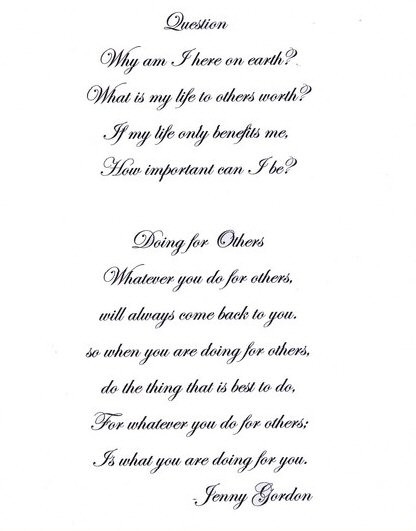 Question
Why am I here on earth?
What is my life to others worth?
If my life only benefits me,
How important can I be?
Doing for Others
Whatever you do for others,
will always come back to you.
so when you are doing for others,
do the thing that is best to do,
For whatever you do for others;
Is what you are doing for you.
-Jenny Gordon